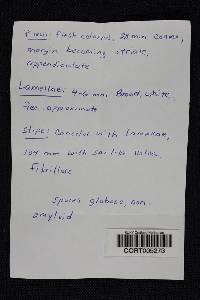 Pileus: flesh colored, 28 mm convex,
margin becoming striate,
appendiculate
Lamellae: 4-6 mm broad, white,
free, approximate
Stipe: Concolor with lamellae,
104 mm with sac-like volva,
fibrillose
Spores globose, non
amyloid
CORT009273